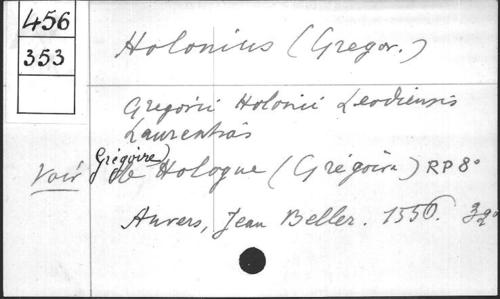 456
353
Holonius (Gregor.)
Gregorii Holonii Leodiensis
Laurentias
Voir Grégoire) de Hologne (Grégoire) RP 8°
Anvers, Jean Beller. 1556.